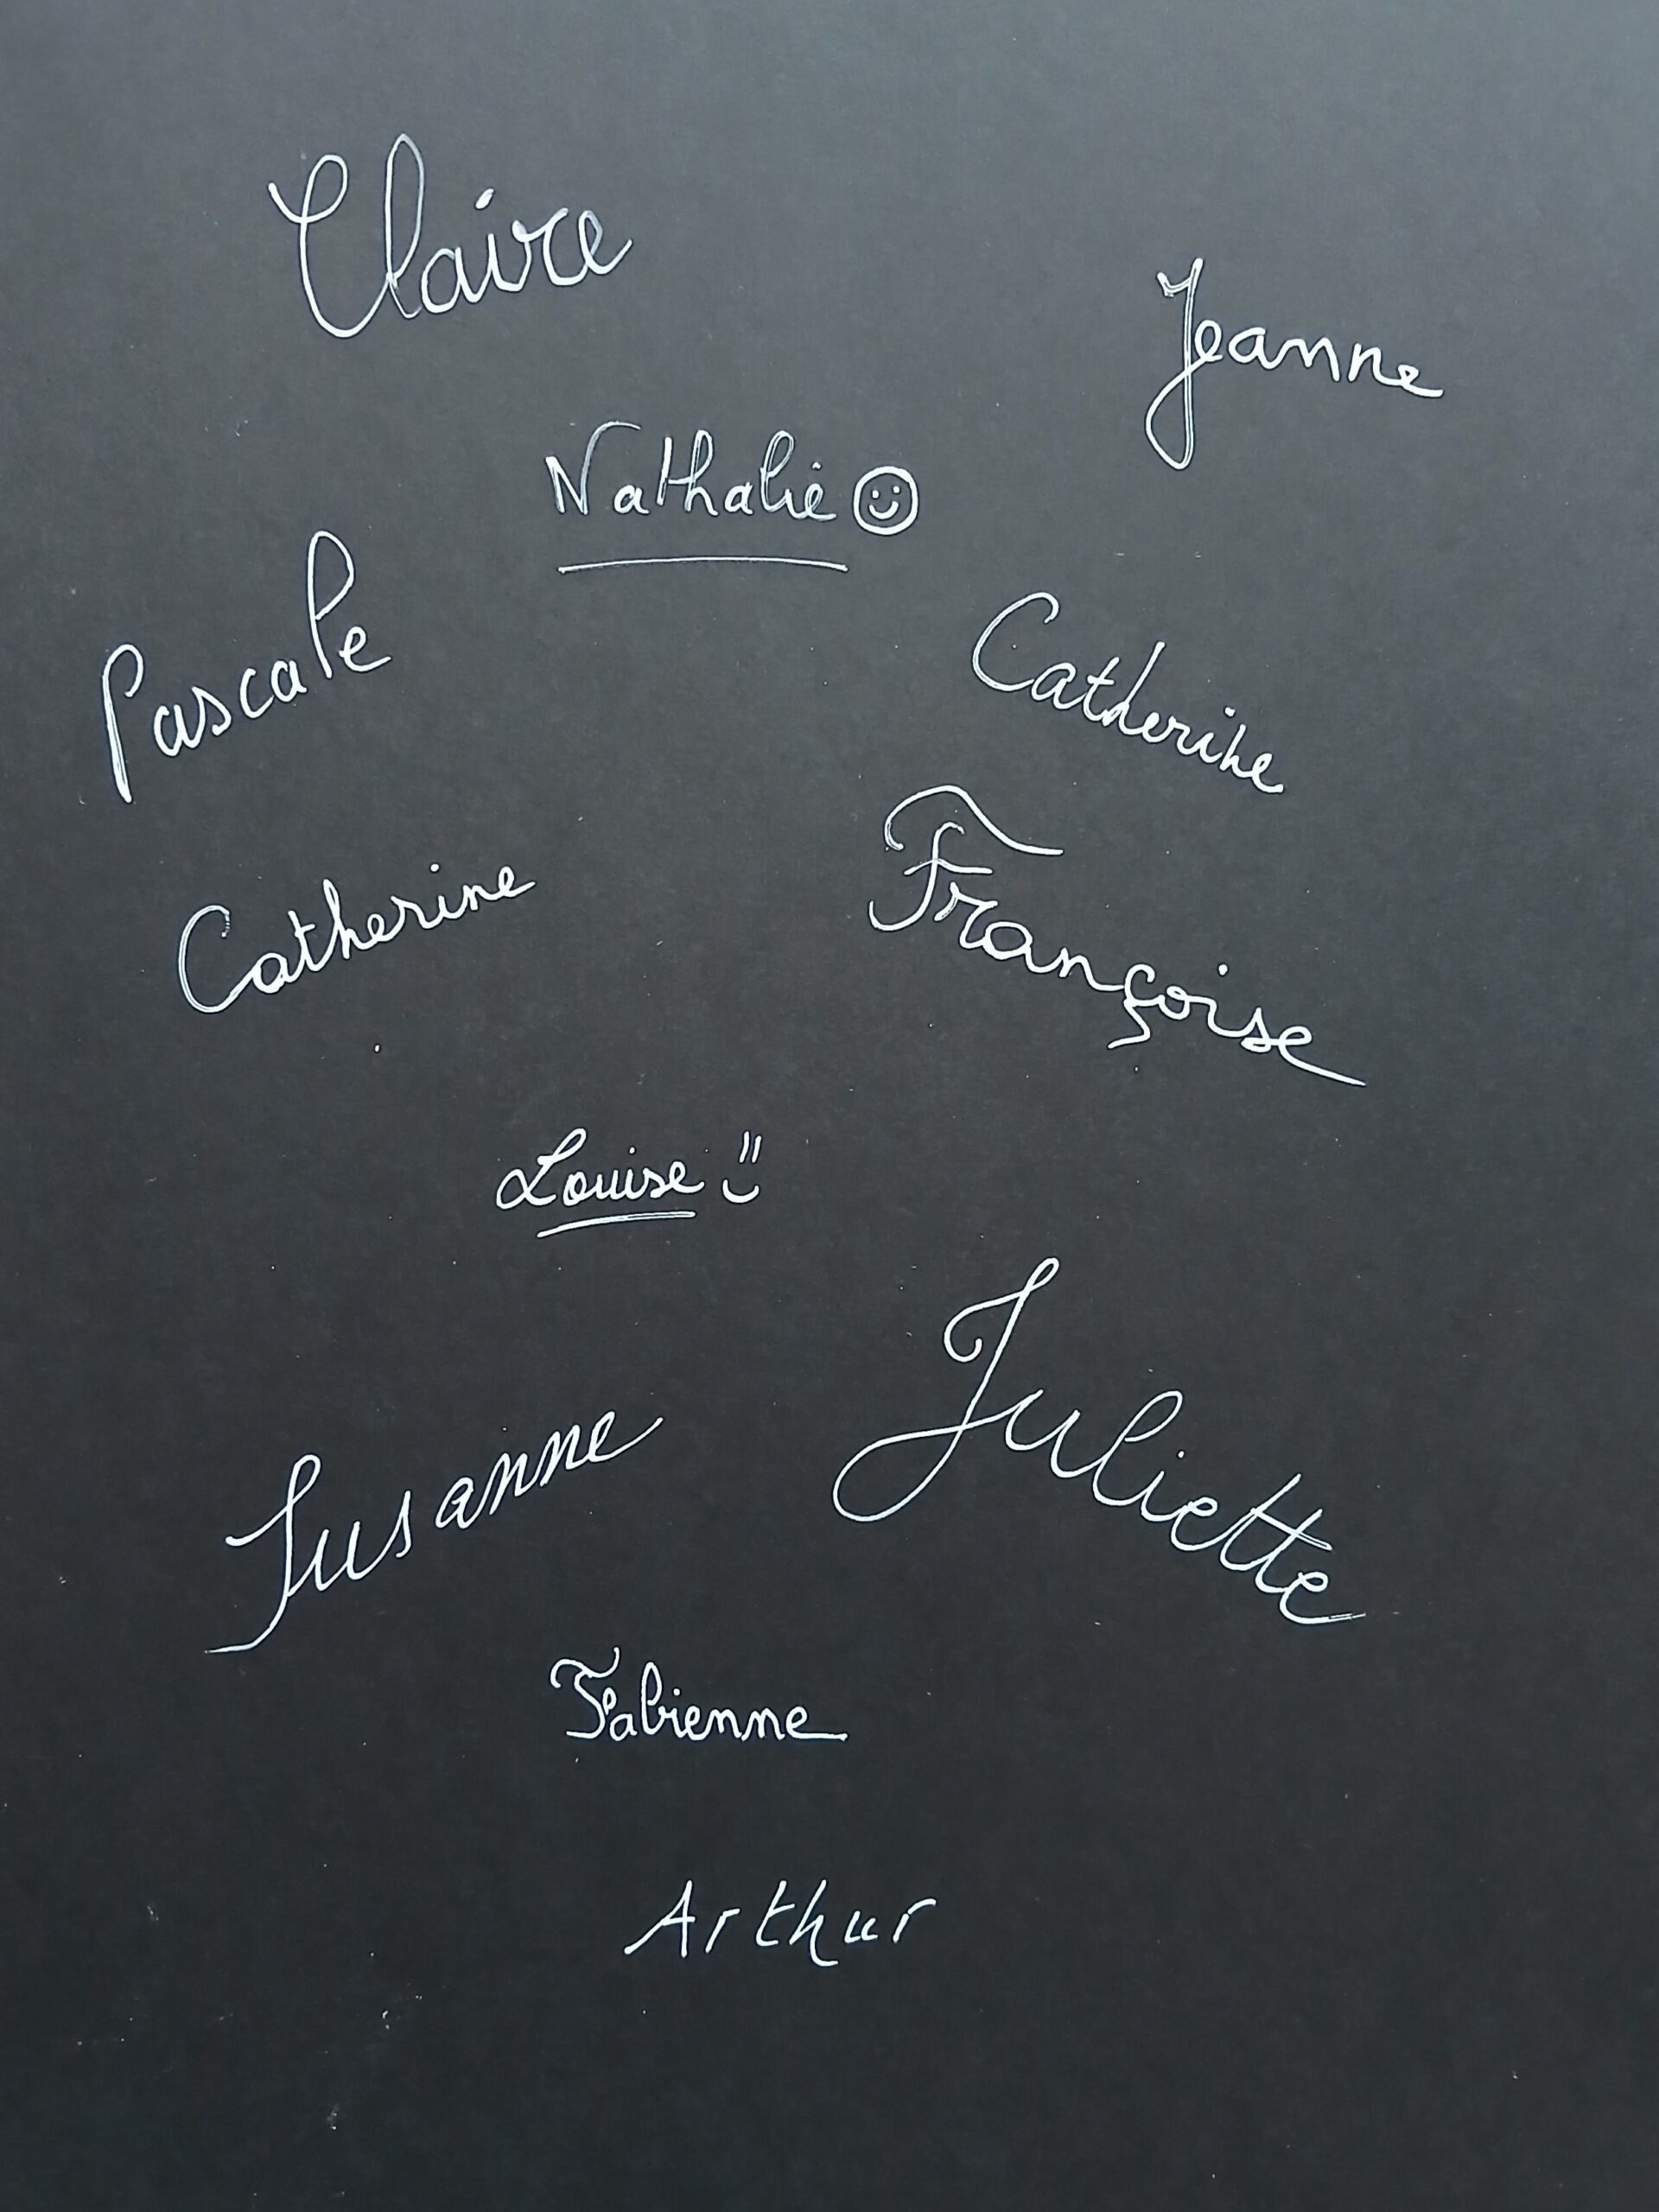 Claire
Jeanne
Nathalie ☺
Pascale
Catherine
Catherine
Françoise
Louise
Juliette
Susanne
Fabienne
Arthur